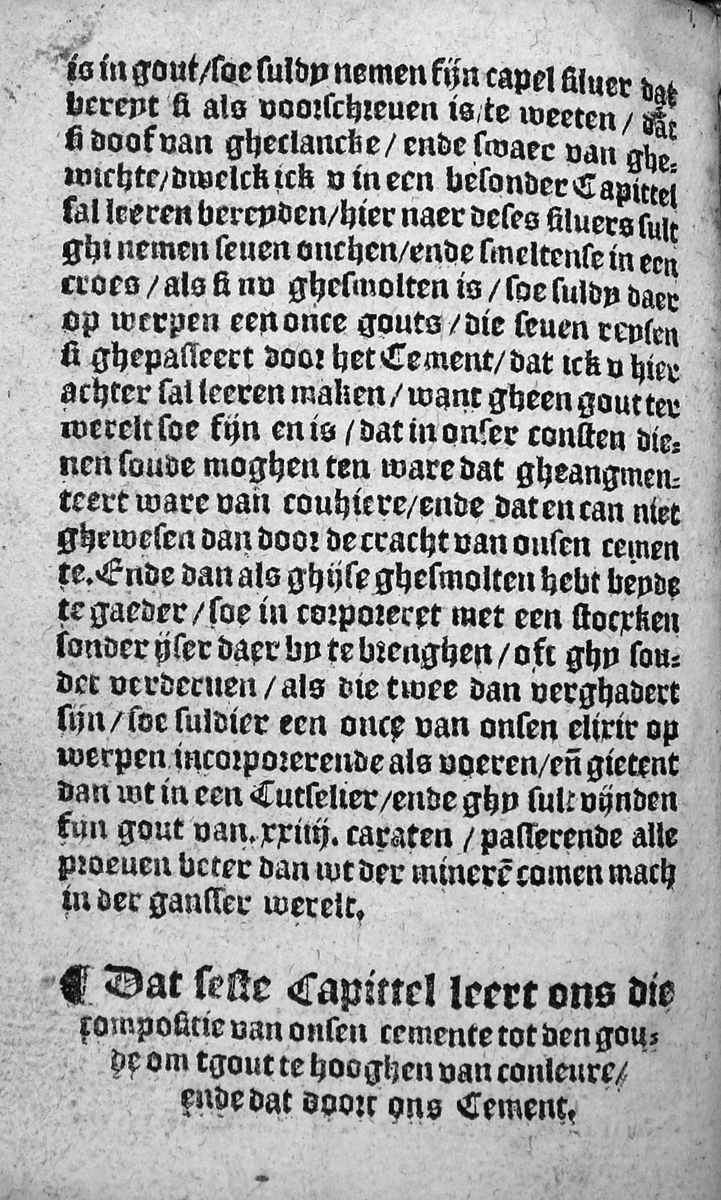 is in gout/soe suldy nemen fijn capel siluer dat
bereyt si als voorschreuen is/te weeten / dat
si doof van gheclancke / ende swaer van ghe⸗
wichte/dwelck ick v in een besonder Capittel
sal leeren bereyden/hier naer deses siluers sult
ghi nemen seuen onchen/ende smeltense in een
croes / als si nv ghesmolten is / soe suldy daer
op werpen een once gouts / die seuen reysen
si ghepasseert door het Cement/ dat ick v hier
achter sal leeren maken / want gheen gout ter
werelt soe fijn en is / dat in onser consten die⸗
nen soude moghen ten ware dat gheangmen⸗
teert ware van couhiere/ende dat en can niet
ghewesen dan door de cracht van onsen cemen
te. Ende dan als ghijse ghesmolten hebt beyde
te gaeder / soe in corporeret met een stocxken
sonder ijser daer by te brenghen / oft ghy sou⸗
det verderuen / als die twee dan verghadert
sijn / soe suldier een once van onsen elixir op
werpen incorporerende als voeren/en̄ gietent
dan wt in een Cutselier/ende ghy sult vijnden
fijn gout van. xxiiij. caraten / passerende alle
proeuen beter dan wt der minerē comen mach
in der gansser werelt.
¶ Dat seste Capittel leert ons die
compositie van onsen cemente tot den gou⸗
de om tgout te hooghen van couleure/
ende dat doort ons Cement.